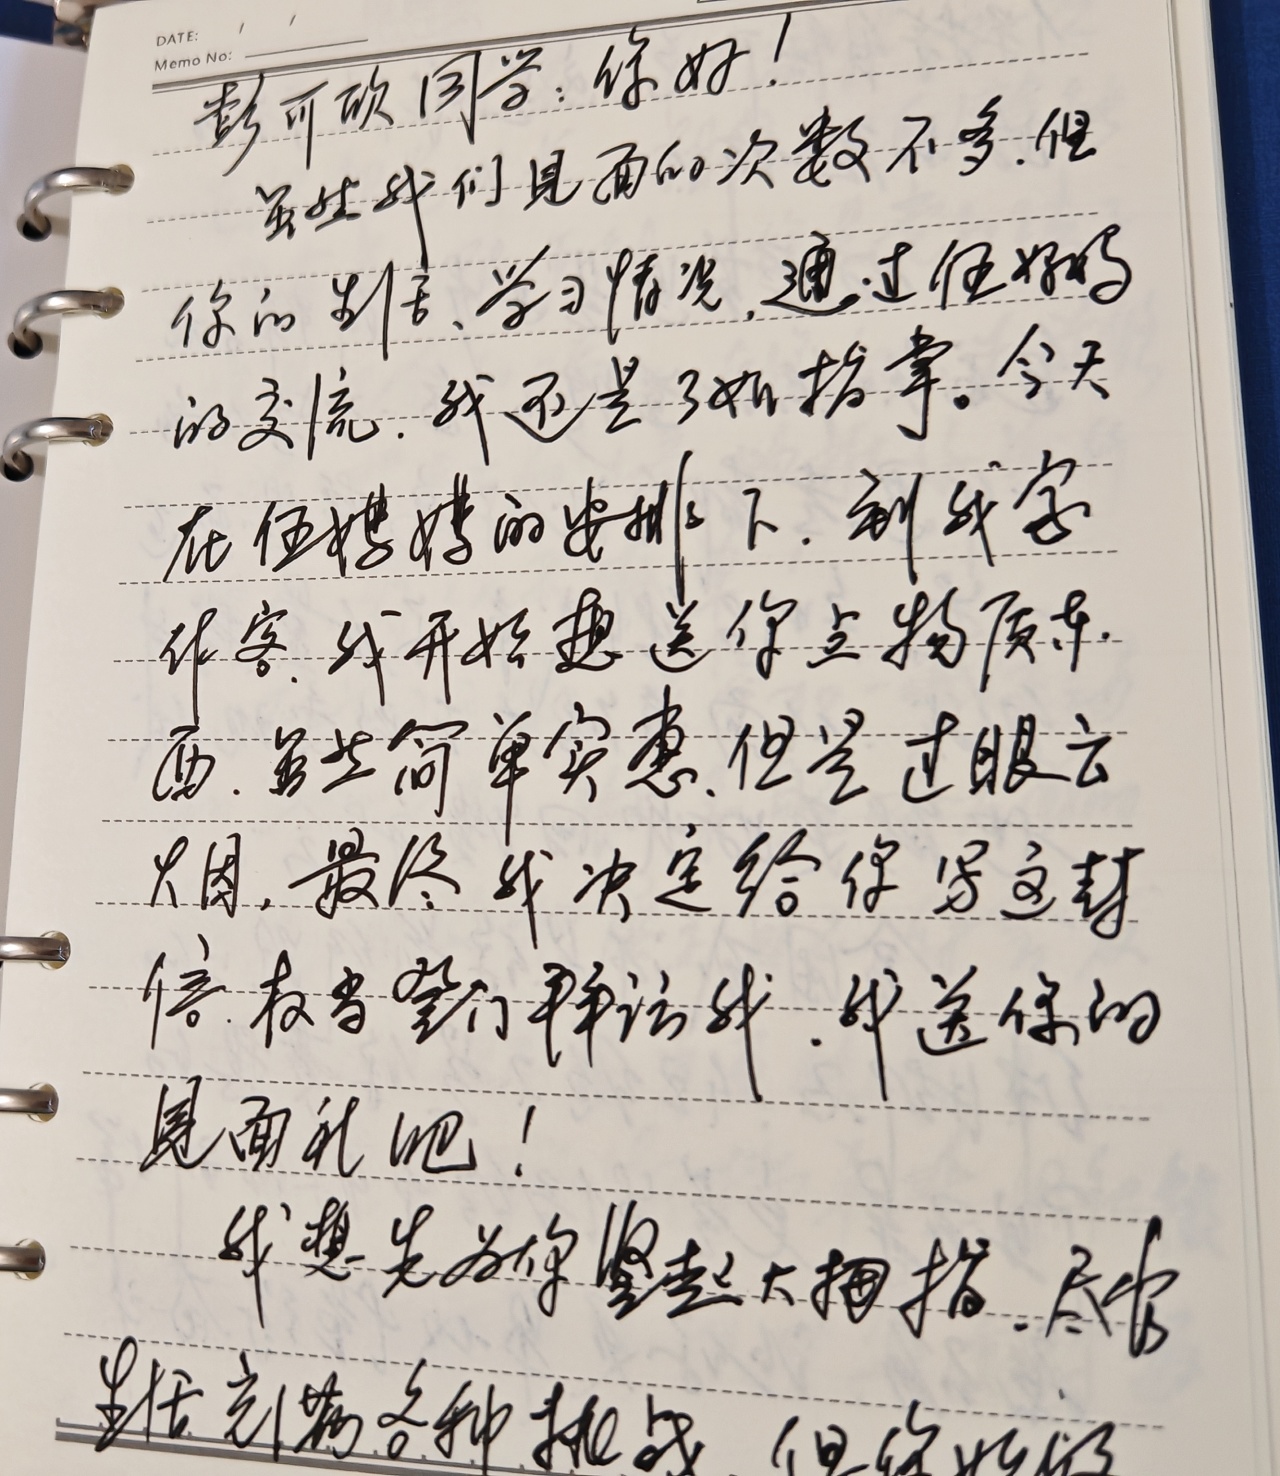 DATE: / /
Memo No:
彭可欣同学:你好!
虽然我们见面的次数不多,但
你的生活、学习情况,通过伍妈妈
的交流,我还是了如指掌。今天
在伍妈妈的安排下,到我家
作客,我开始想送你点物质东
西,虽然简单实惠,但是过眼云
烟,最终我决定给你写这封
信,权当登门拜访我,我送你的
见面礼吧!
我想先为你竖起大拇指,尽管
生活充满各种挑战,但你始终